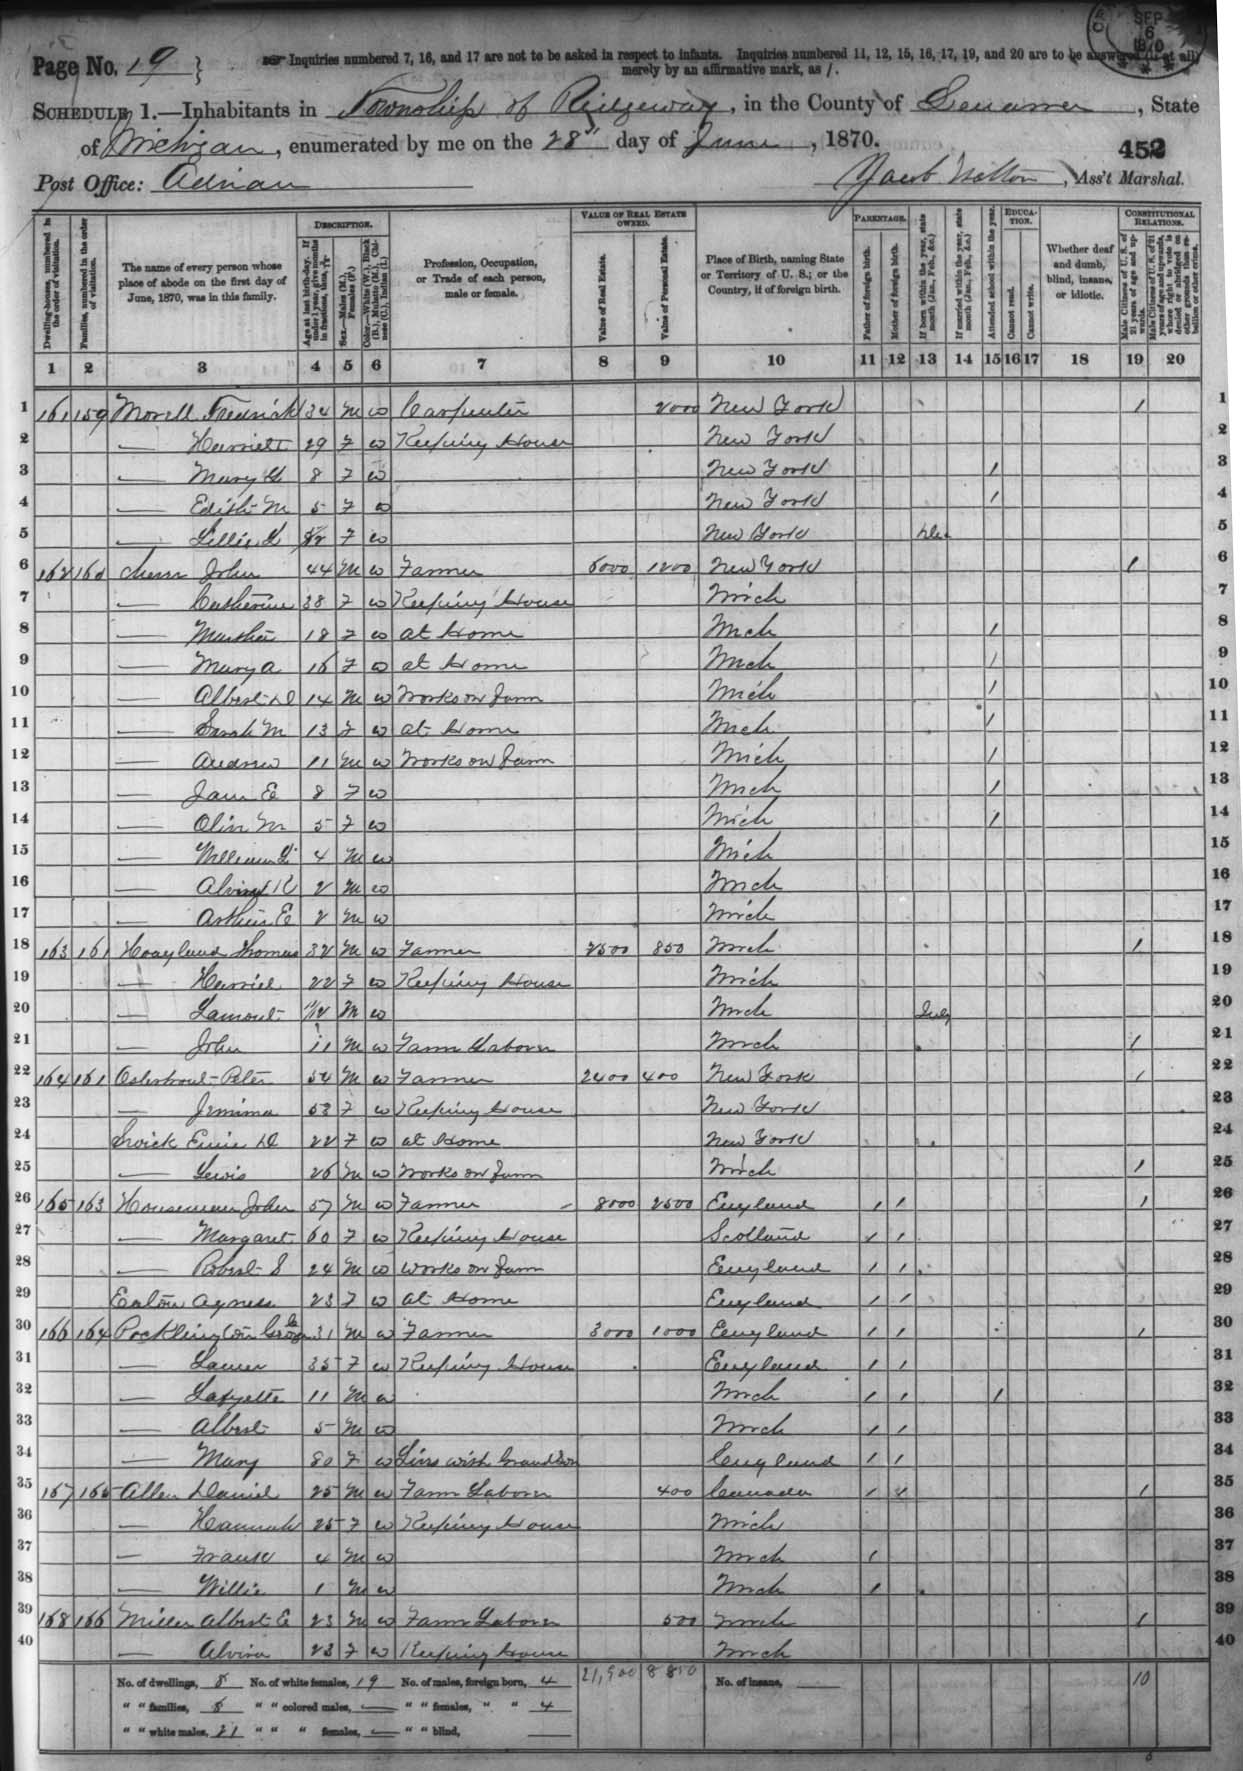 Page No. 19 } Inquiries numbered 7, 16, and 17 are not to be asked in respect to infants. Inquiries numbered 11, 12, 15, 16, 17, 19, and 20 are to be answered (if at all)
merely by an affirmative mark, as /.
SEP 6 1870
SCHEDULE 1.—Inhabitants in Township of Ridgeway, in the County of Lenawee, State
of Michigan, enumerated by me on the 28" day of June, 1870.
452
Post Office: Adrian
Jacob Walton, Ass't Marshal.
Dwelling-houses, numbered in the order of visitation.
Families, numbered in the order of visitation.
The name of every person whose place of abode on the first day of June, 1870, was in this family.
DESCRIPTION.
Age at last birth-day. If under 1 year, give months in fractions, thus, 3/12
Sex.—Males (M.), Females (F.)
Color.—White (W.), Black (B.), Mulatto (M.), Chinese (C.), Indian (I.)
Profession, Occupation, or Trade of each person, male or female.
VALUE OF REAL ESTATE OWNED.
Value of Real Estate.
Value of Personal Estate.
Place of Birth, naming State or Territory of U. S.; or the Country, if of foreign birth.
PARENTAGE.
Father of foreign birth.
Mother of foreign birth.
If born within the year, state month (Jan., Feb., &c.)
If married within the year, state month (Jan., Feb., &c.)
Attended school within the year.
EDUCATION.
Cannot read.
Cannot write.
Whether deaf and dumb, blind, insane, or idiotic.
CONSTITUTIONAL RELATIONS.
Male Citizens of U. S. of 21 years of age and upwards.
Male Citizens of U. S. of 21 years of age and upwards, where right to vote is denied or abridged on other grounds than rebellion or other crimes.
1 2 3 4 5 6 7 8 9 10 11 12 13 14 15 16 17 18 19 20
1 161 159 Morell Fredrick 34 M W Carpenter 2000 New York / 1
2 — Harriett 29 F W Keeping House New York 2
3 — Mary 8 F W New York / 3
4 — Edith M 5 F W New York / 4
5 — Lillie F W New York Dec 5
6 162 160 John 44 M W Farmer 6000 1200 New York / 6
7 — Catherine 38 F W Keeping House Mich 7
8 — Martha 18 F W at Home Mich / 8
9 — Mary A 16 F W at Home Mich / 9
10 — Albert D 14 M W Works on Farm Mich / 10
11 — Sarah M 13 F W at Home Mich / 11
12 — Andrew 11 M W Works on Farm Mich / 12
13 — Jane E 8 F W Mich / 13
14 — Olin M 5 F W Mich / 14
15 — William L 4 M W Mich 15
16 — Alvin R 2 M W Mich 16
17 — Arthur E 2 M W Mich 17
18 163 161 Hoagland Thomas 32 M W Farmer 2500 850 Mich / 18
19 — Harriet 22 F W Keeping House Mich 19
20 — Lamont 11/12 M W Mich July 20
21 — John 11 M W Farm Laborer Mich / 21
22 164 161 Osterhout Peter 54 M W Farmer 2400 400 New York / 22
23 — Jemima 53 F W Keeping House New York 23
24 22 F W at Home New York 24
25 — Lewis 26 M W Works on Farm Mich / 25
26 165 163 Houseman John 57 M W Farmer 8000 2500 England / / / 26
27 — Margaret 60 F W Keeping House Scotland / / 27
28 — Robert S 24 M W Works on Farm England / / 28
29 Eaton Agness 23 F W at Home England / / 29
30 166 164 Pocklington George 31 M W Farmer 3000 1000 England / / / 30
31 — Laura 35 F W Keeping House England / / 31
32 — Lafyette 11 M W Mich / / / 32
33 — Albert 5 M W Mich / / 33
34 — Mary 80 F W Livs with Grandson England / / 34
35 167 165 Allen Daniel 25 M W Farm Laborer 400 Canada / / / 35
36 — Hannah 25 F W Keeping House Mich 36
37 — Frank 4 M W Mich / 37
38 — Willie 1 M W Mich / 38
39 168 166 Miller Albert E 23 M W Farm Laborer 500 Mich / 39
40 — Alvira 23 F W Keeping House Mich 40
No. of dwellings, 8 No. of white females, 19 No. of males, foreign born, 4 21,900 8850 No. of insane, 10
" " families, 8 " " colored males, — " " females, " " 4
" " white males, 21 " " " females, — " " blind,